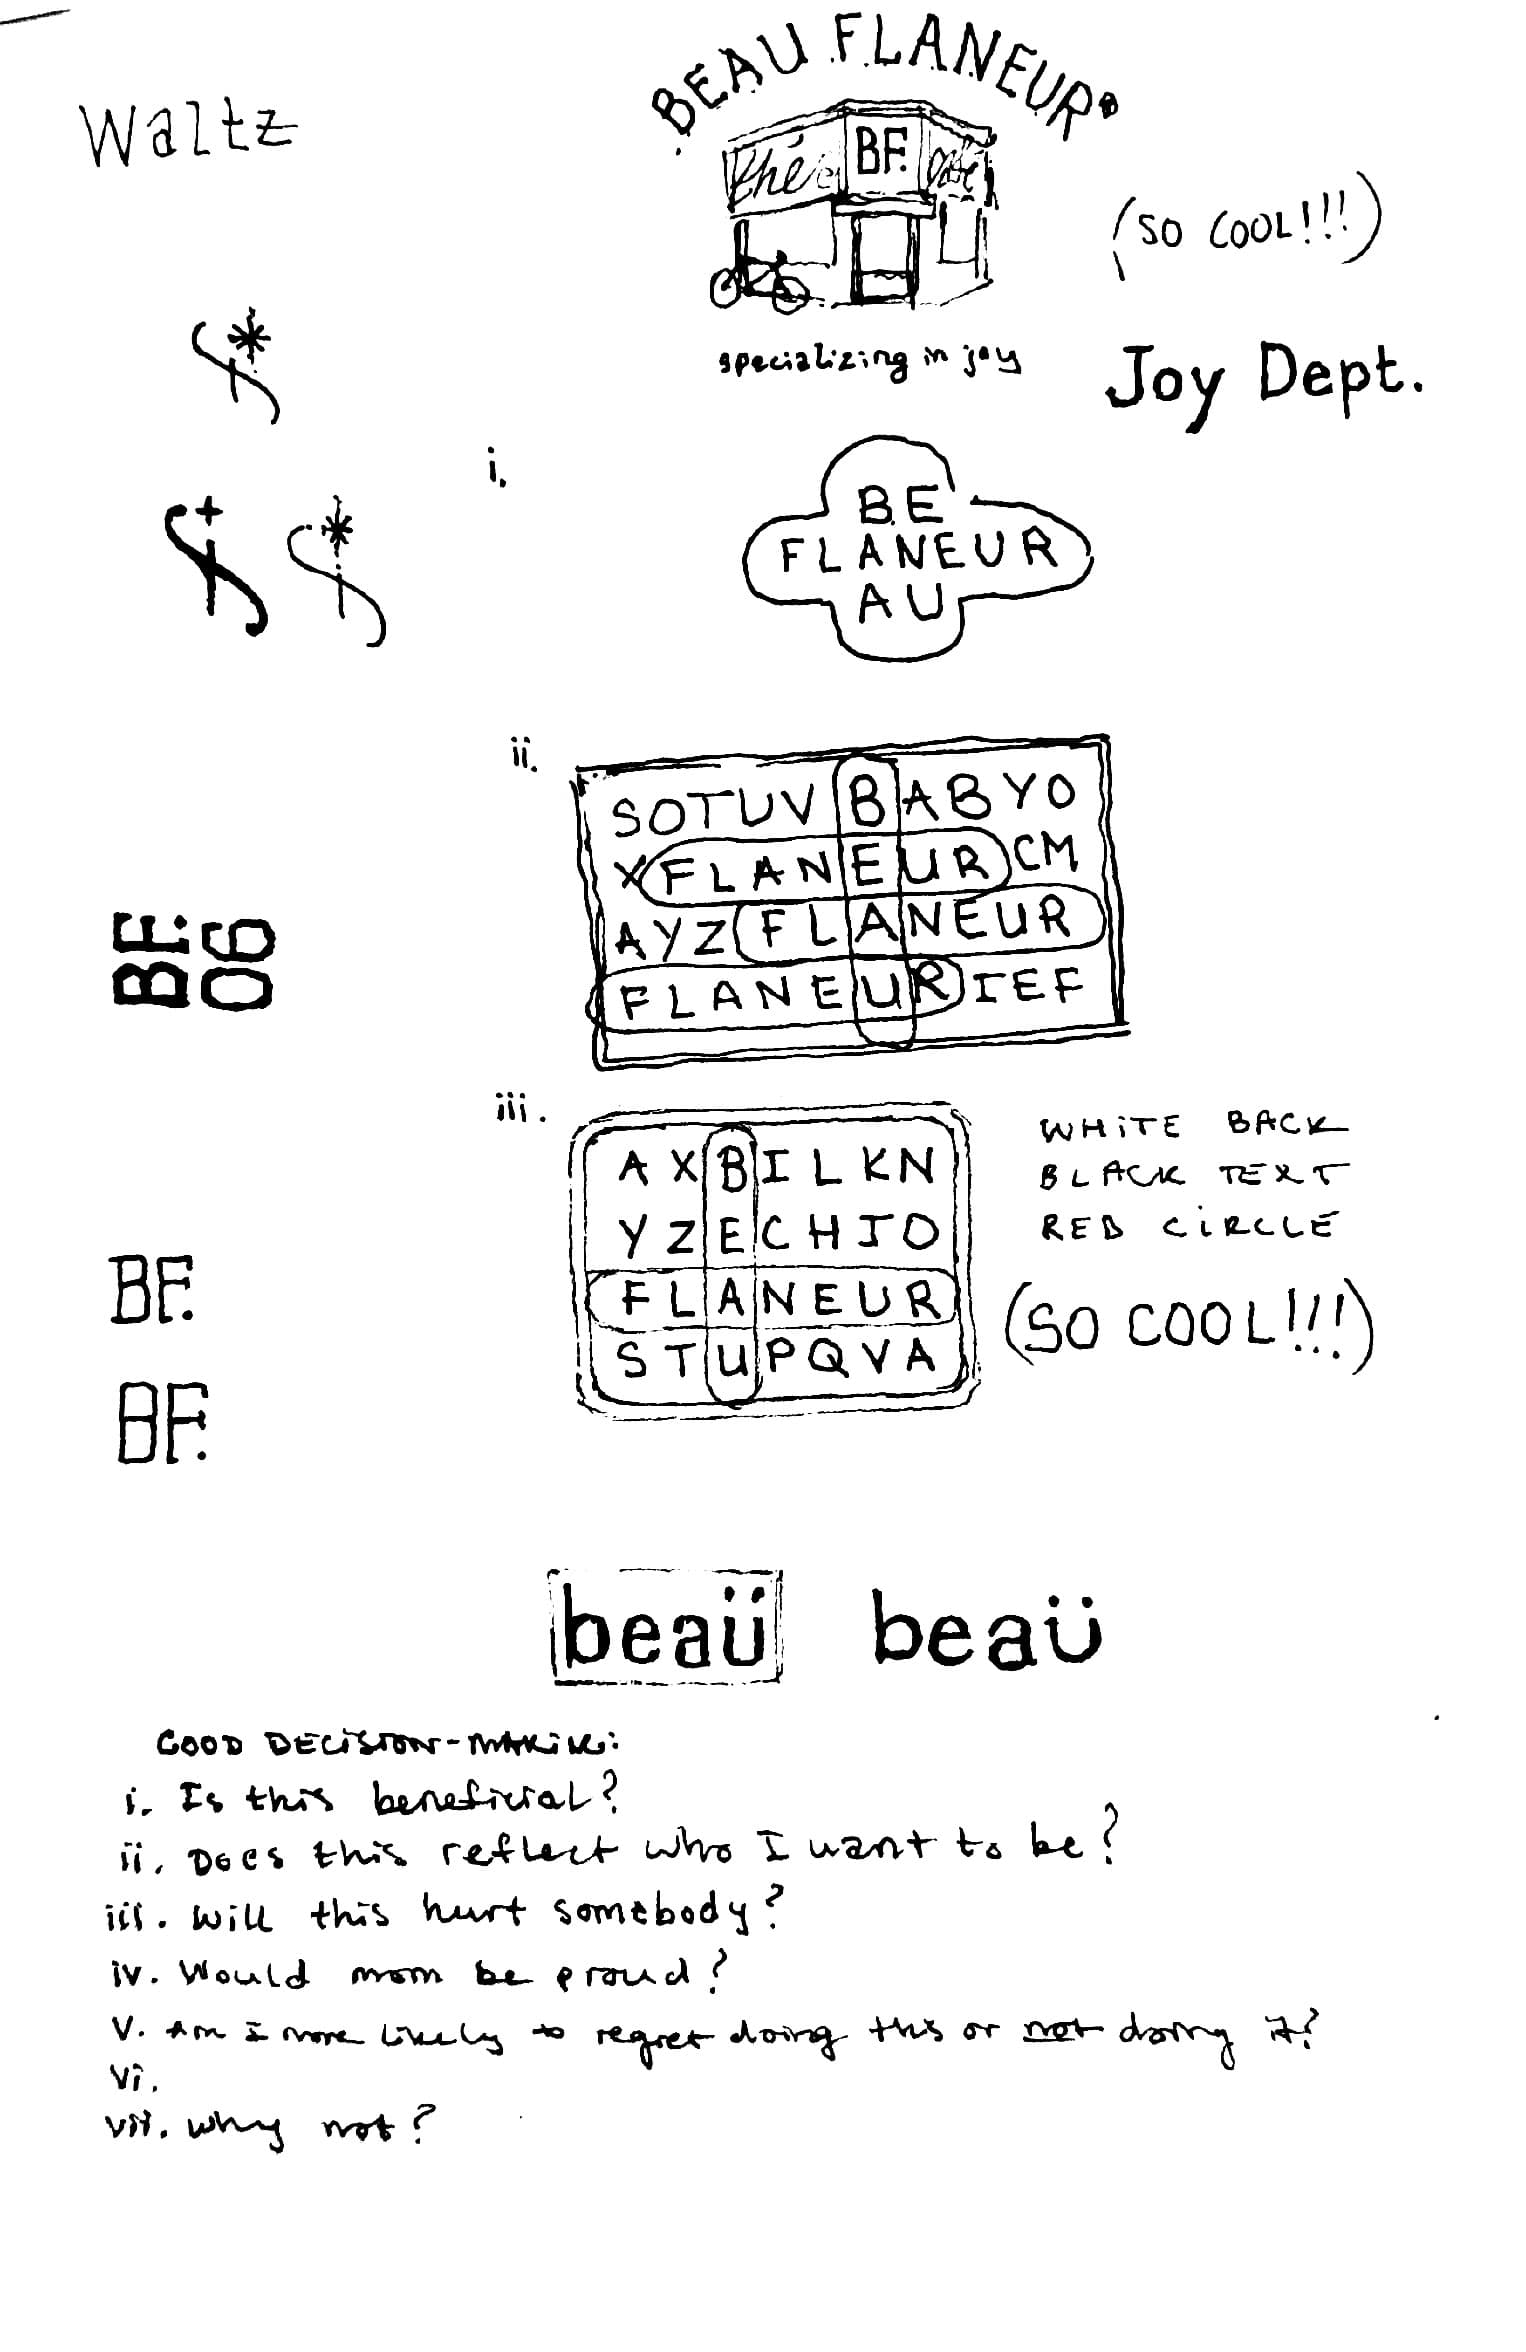 BEAU FLANEUR
Waltz
Thé BF.
(SO COOL!!!)
specializing in joy
Joy Dept.
i.
BE
FLANEUR
AU
ii.
SOTUVBABYO
XFLANEURCM
AYZFLANEUR
FLANEURIEF
BF.
06
iii.
AXBILKN
YZECHJO
FLANEUR
STUPQVA
WHiTE BACK
BLACK TEXT
RED CiRCLE
(SO COOL!!!)
BF.
BF.
beaü beaü
GOOD DECISION-MAKING:
i. Is this beneficial?
ii. Does this reflect who I want to be?
iii. Will this hurt somebody?
iv. Would mom be proud?
v. Am I more likely to regret doing this or not doing it?
vi.
vii. Why not?